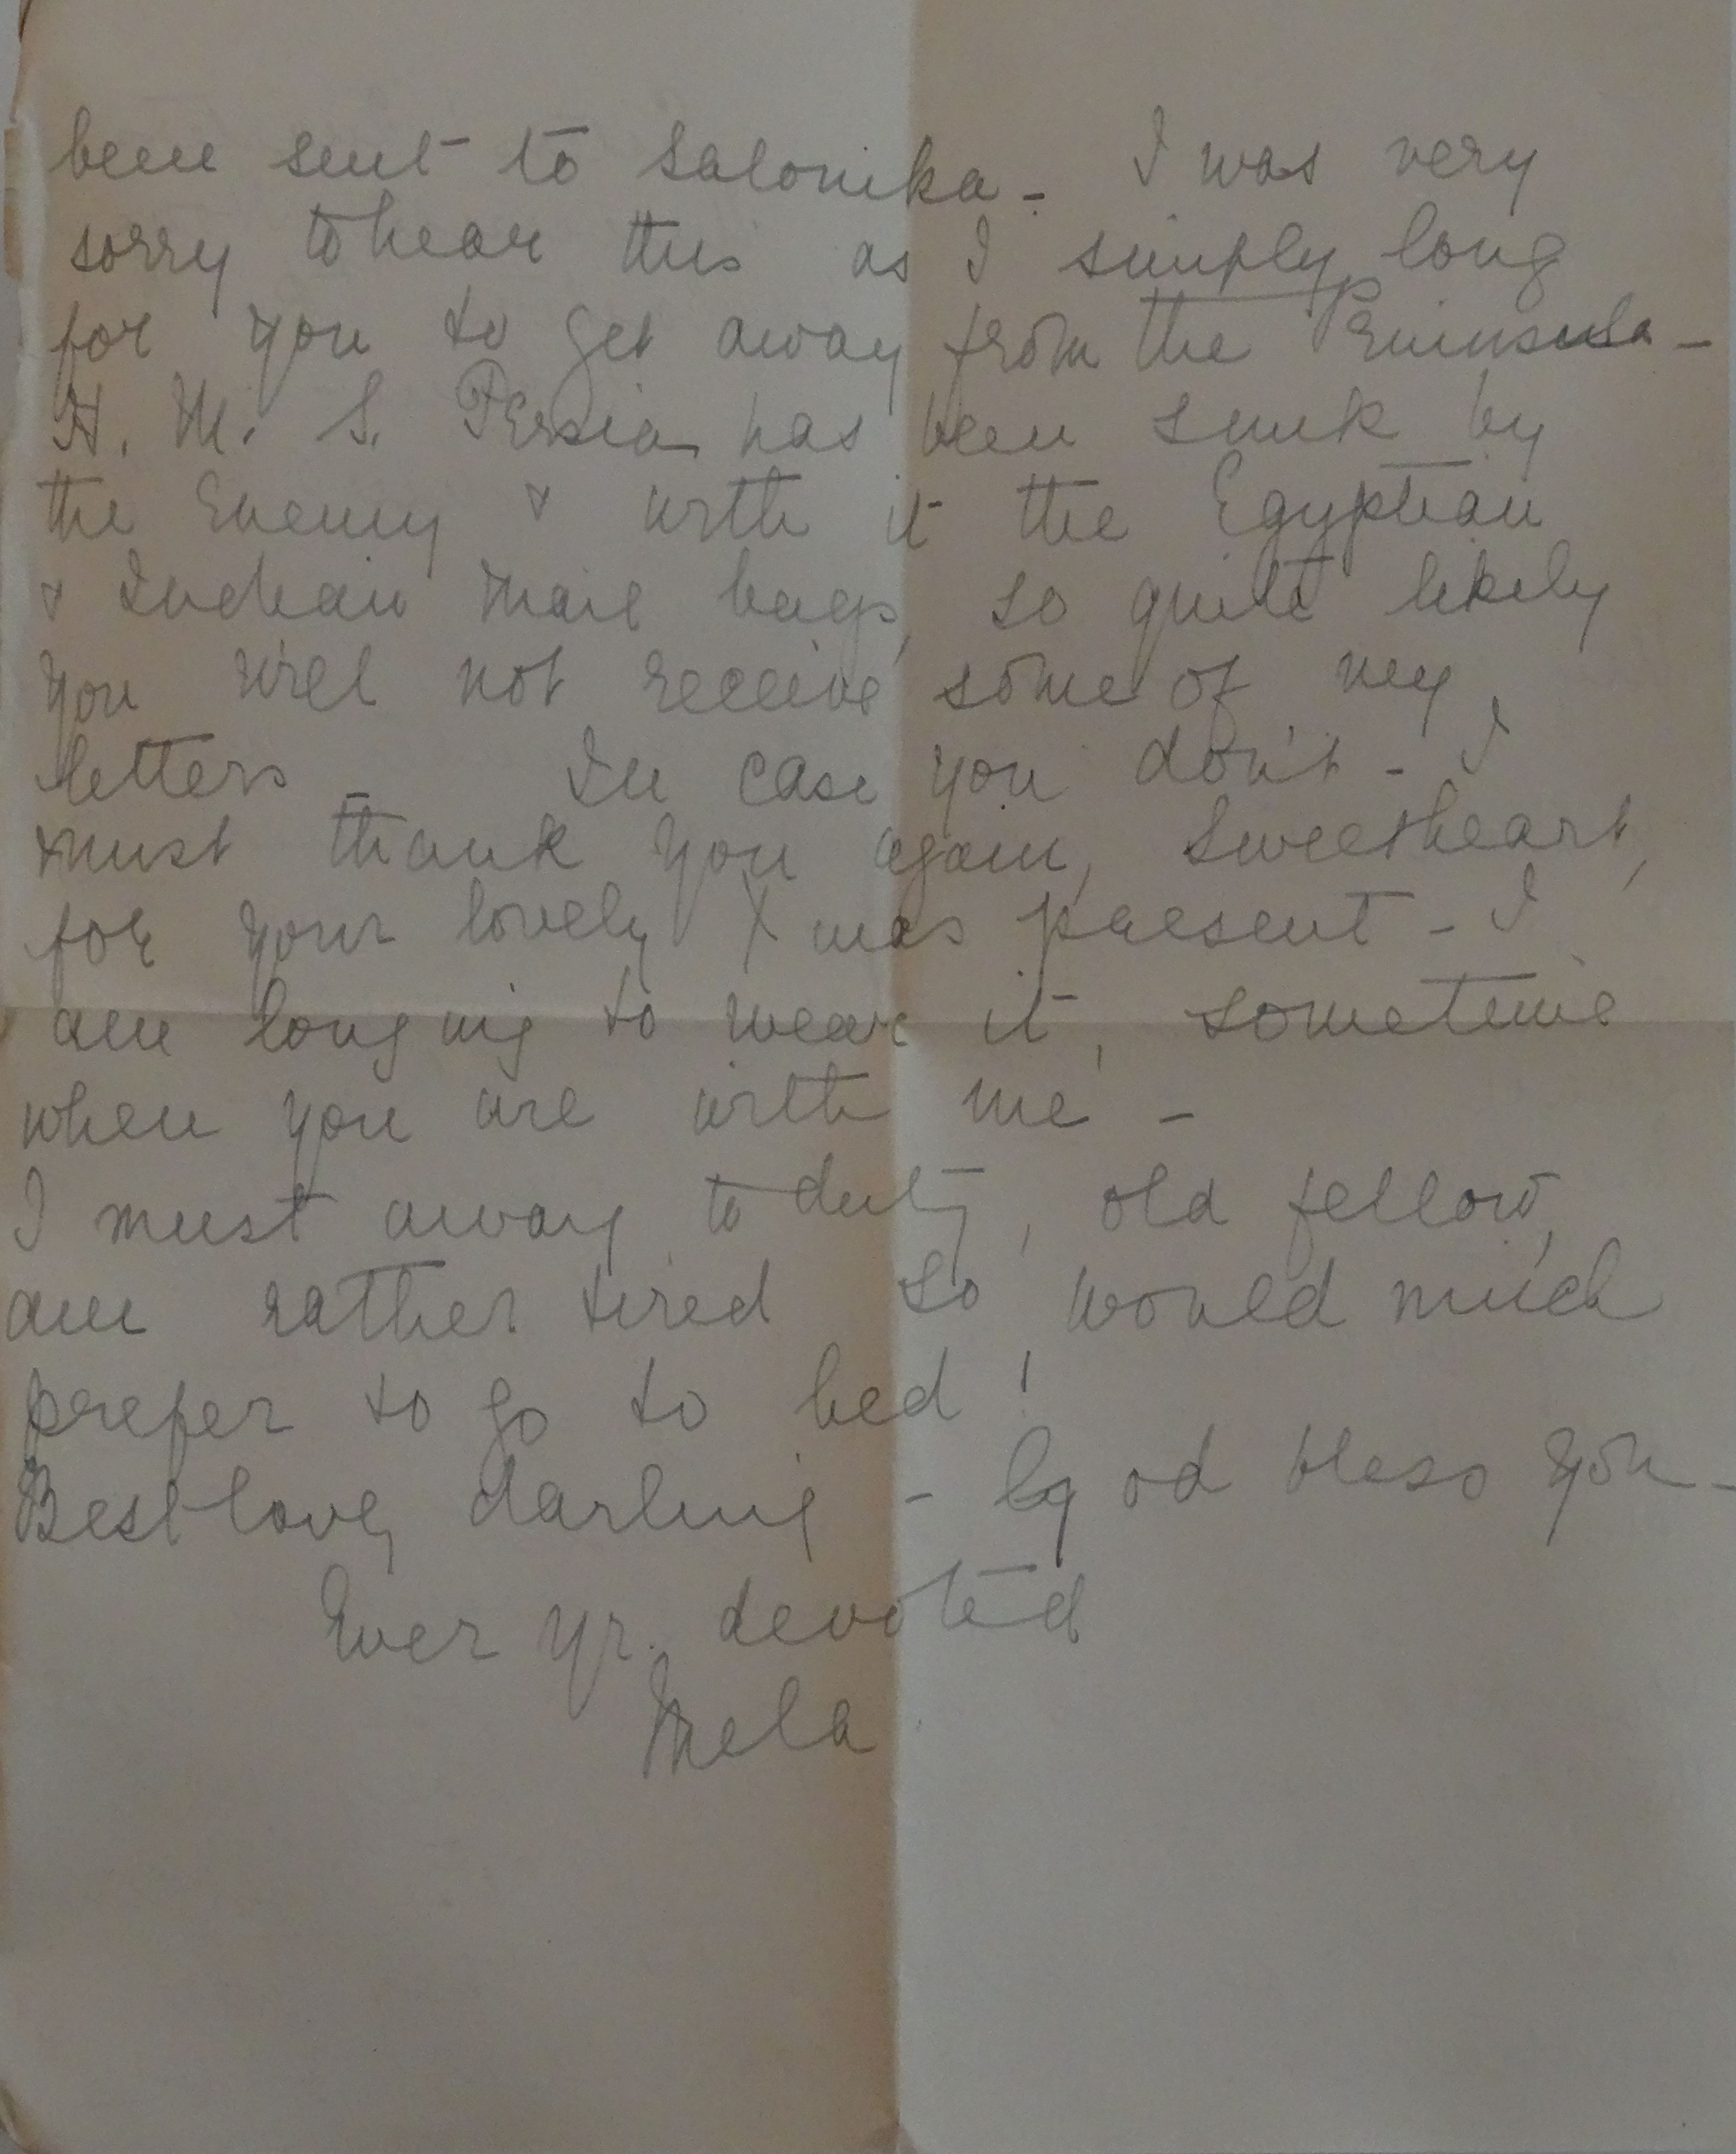 been sent to Salonika - I was very
sorry to hear this as I simply long
for you to get away from the Peninsula -
H. M. S. Persia has been sunk by
the Enemy & with it the Egyptian
& Indian Mail bags, so quite likely
you will not receive some of my
letters - In case you don't - I
must thank you again, Sweetheart,
for your lovely Xmas present - I
am longing to wear it, sometime
when you are with me -
I must away to duty, old fellow,
am rather tired so would much
prefer to go to bed!
Best love, darling - God bless you -
Ever yr. devoted
Mela